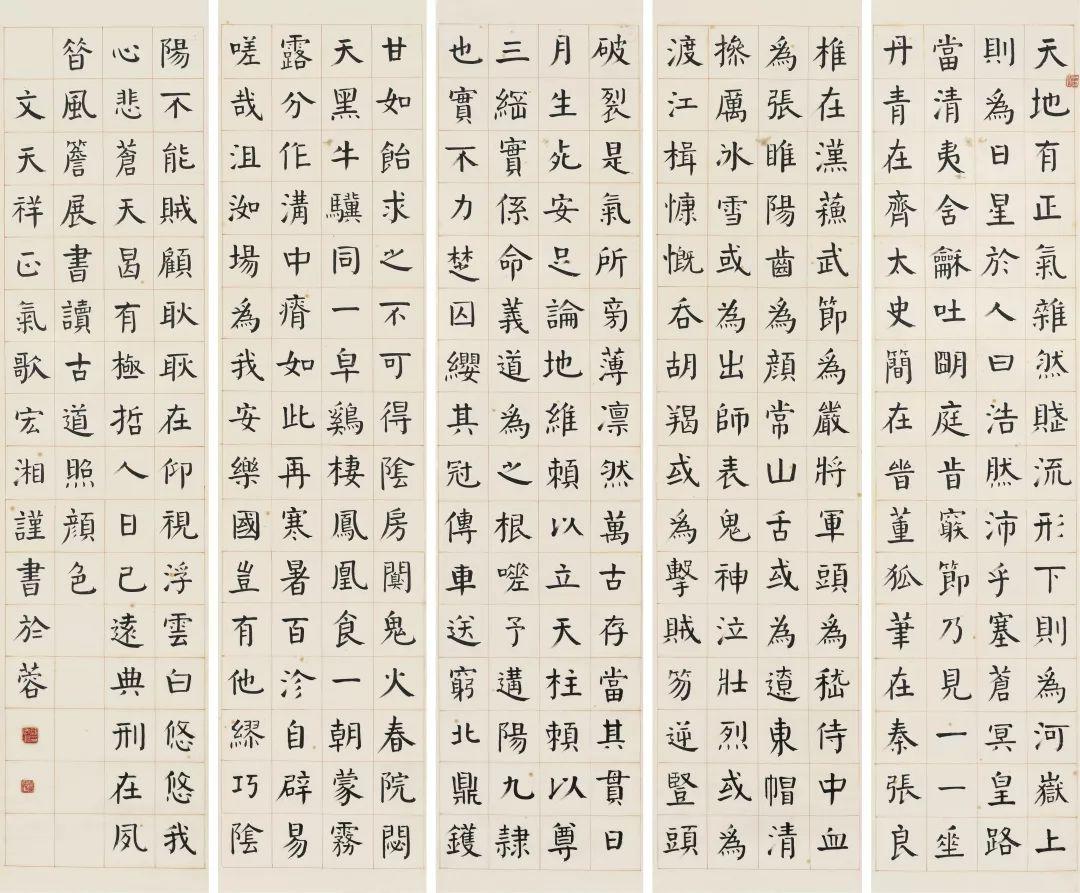 天地有正氣雜然賦流形下則為河嶽上
則為日星於人曰浩然沛乎塞蒼冥皇路
當清夷含龢吐朙庭旹竆節乃見一一垂
丹青在齊太史簡在晉董狐筆在秦張良
椎在漢蘇武節為嚴將軍頭為嵇侍中血
為張睢陽齒為顏常山舌或為遼東帽清
操厲冰雪或為出師表鬼神泣壯烈或為
渡江楫慷慨吞胡羯或為擊賊笏逆豎頭
破裂是氣所旁薄凛然萬古存當其貫日
月生死安足論地維賴以立天柱賴以尊
三綱實係命義道為之根嗟予遘陽九隸
也實不力楚囚纓其冠傳車送窮北鼎鑊
甘如飴求之不可得陰房闃鬼火春院閟
天黑牛驥同一皁鷄棲鳳凰食一朝蒙霧
露分作溝中瘠如此再寒暑百沴自辟易
嗟哉沮洳場為我安樂國豈有他繆巧陰
陽不能賊顧耿耿在仰視浮雲白悠悠我
心悲蒼天曷有極哲人日已遠典刑在夙
昝風簷展書讀古道照顏色
文天祥正氣歌宏湘謹書於蓉